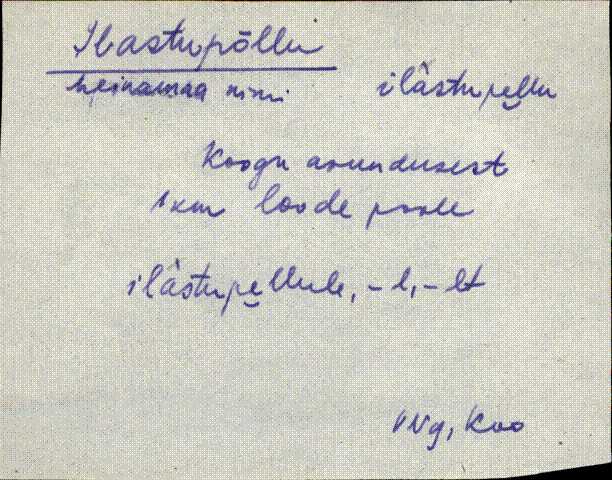 Ilastupõllu
heinamaa nimi    ilästupe̬llu
Koogu asundusest
1 km loode poole
ilästupe̬llule, -l, -lt
VNg, Koo